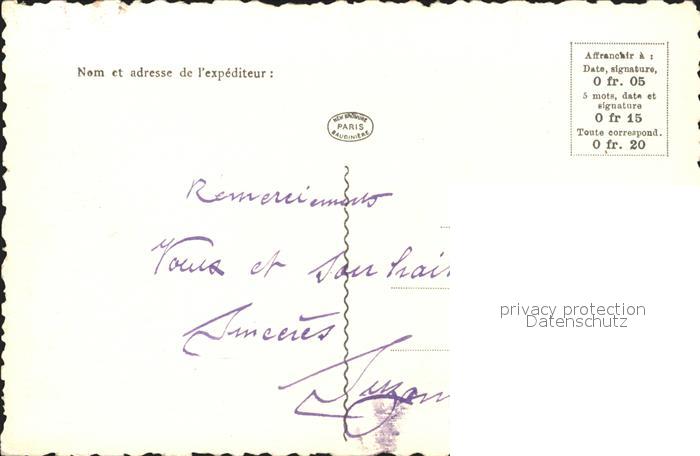 Nom et adresse de l'expéditeur :
Affranchir à :
Date, signature,
0 fr. 05
5 mots, date et
signature
0 fr 15
Toute correspond.
0 fr. 20
PARIS
BAUDINIÈRE
Remerciements
Voeux et Souhai
Sincères
privacy protection
Datenschutz